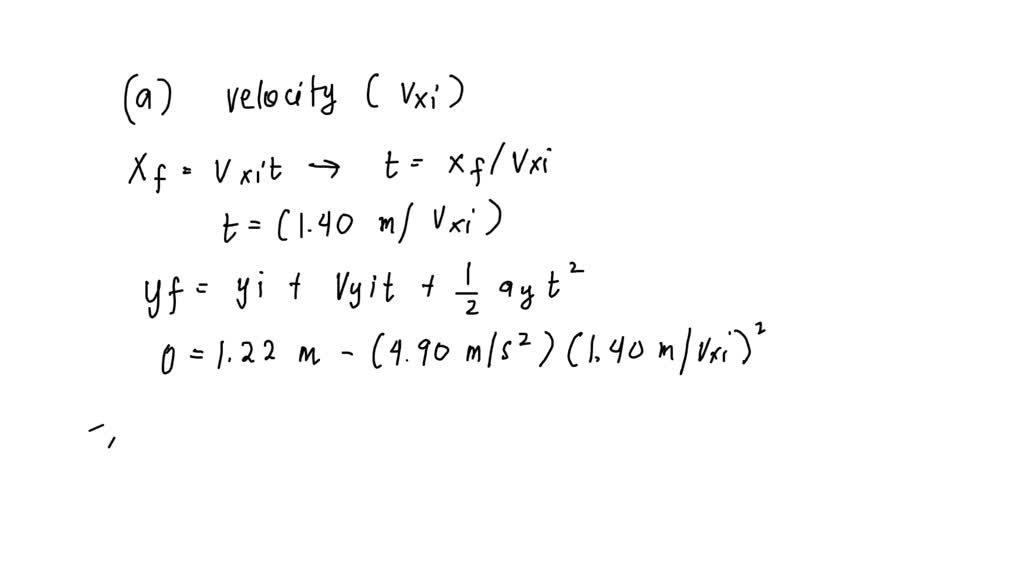 (a) velocity ( Vxi )
Xf = Vxit → t = xf/Vxi
t = (1.40 m/ Vxi)
yf = yi + Vyit + 1/2 ay t²
0 = 1.22 m - (4.90 m/s²) (1.40 m/Vxi)²